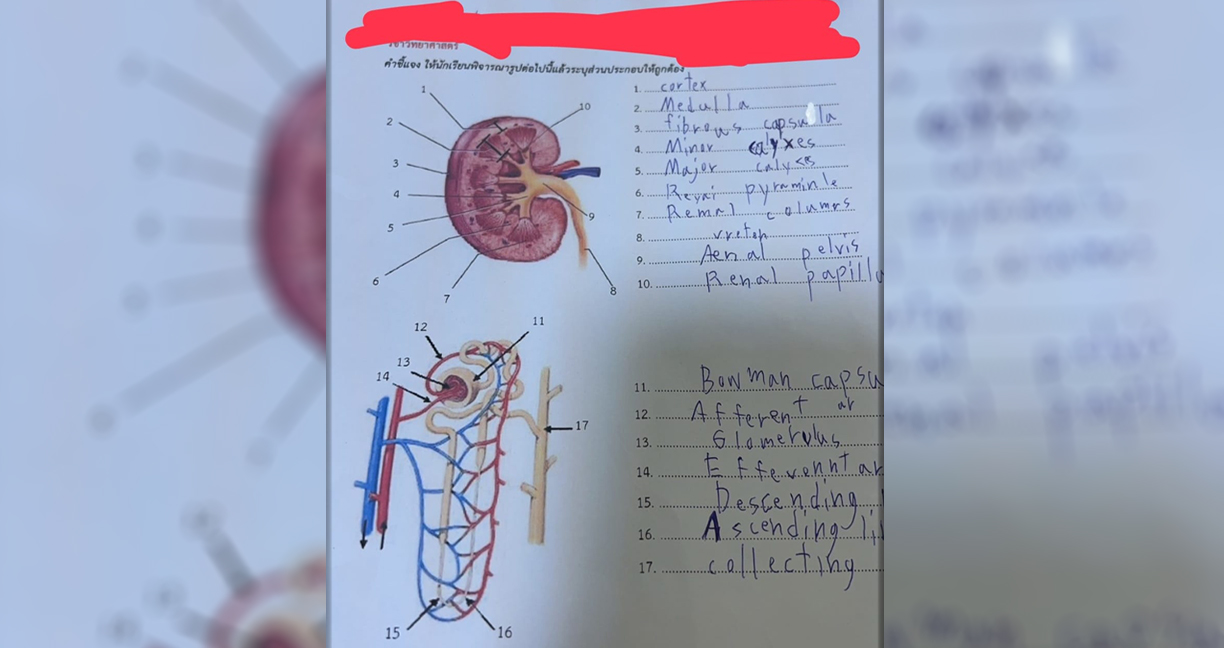 วิชาวิทยาศาสตร์
คำชี้แจง ให้นักเรียนพิจารณารูปต่อไปนี้แล้วระบุส่วนประกอบให้ถูกต้อง
1
2
3
4
5
6
7
8
9
10
1. cortex
2. Medulla
3. fibrous capsula
4. Minor calyxes
5. Major
6. pyraminle
7. Remal columrs
8.
9. Aenal pelvis
10. Renal papilla
11
12
13
14
15
16
17
11. Bowman capsu
12. Afferent ar
13. Glomerulus
14. Effevennt ar
15. Descending
16. Ascending li
17. collecting